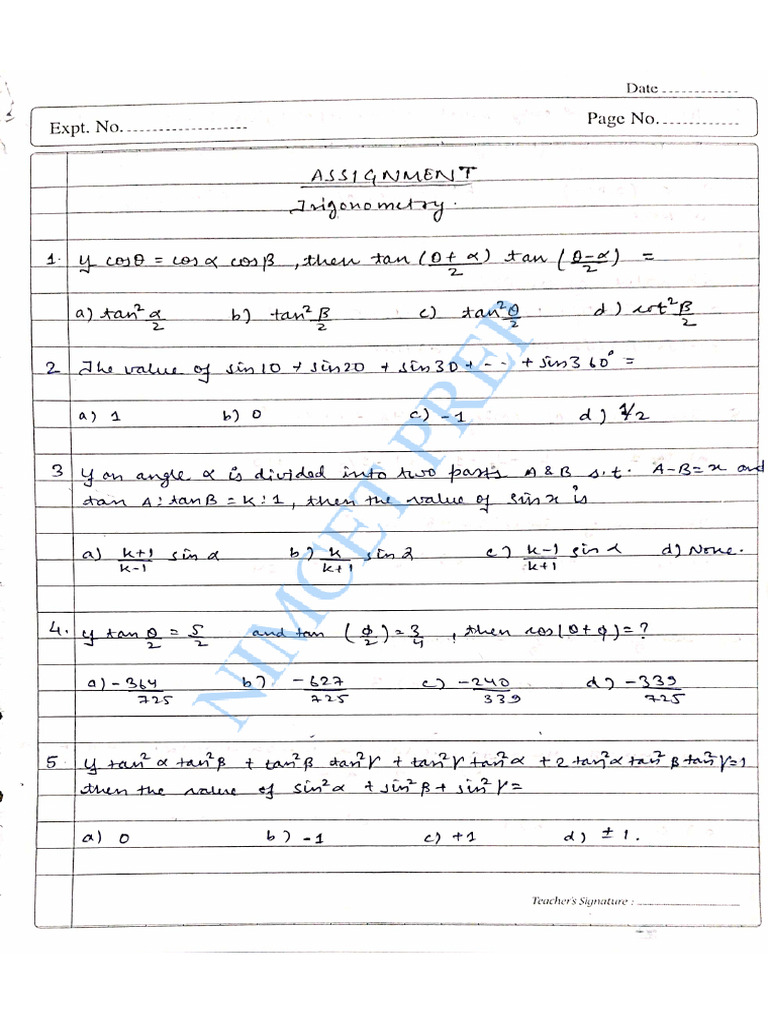 Date ............
Expt. No. ....................
Page No. ............
ASSIGNMENT
Trigonometry.
1. If cosθ = cosα cosβ, then tan (θ+α)/2 tan (θ-α)/2 =
a) tan² α/2 b) tan² β/2 c) tan² θ/2 d) cot² β/2
2 The value of sin10 + sin20 + sin30 + -- + sin360° =
a) 1 b) 0 c) -1 d) 1/2
3 If an angle α is divided into two parts A & B s.t. A-B = x and
tan A : tan B = K : 1, then the value of sin x is
a) k+1/k-1 sin α b) k/k+1 sin 2 c) k-1/k+1 sin α d) None.
4. If tan θ/2 = 5/2 and tan (φ/2) = 3/4, then cos(θ+φ) = ?
a) -364/725 b) -627/725 c) -240/339 d) -339/725
5 If tan²α tan²β + tan²β tan²γ + tan²γ tan²α + 2 tan²α tan²β tan²γ = 1
then the value of sin²α + sin²β + sin²γ =
a) 0 b) -1 c) +1 d) ± 1.
NIMCET PREP
Teacher's Signature : ....................